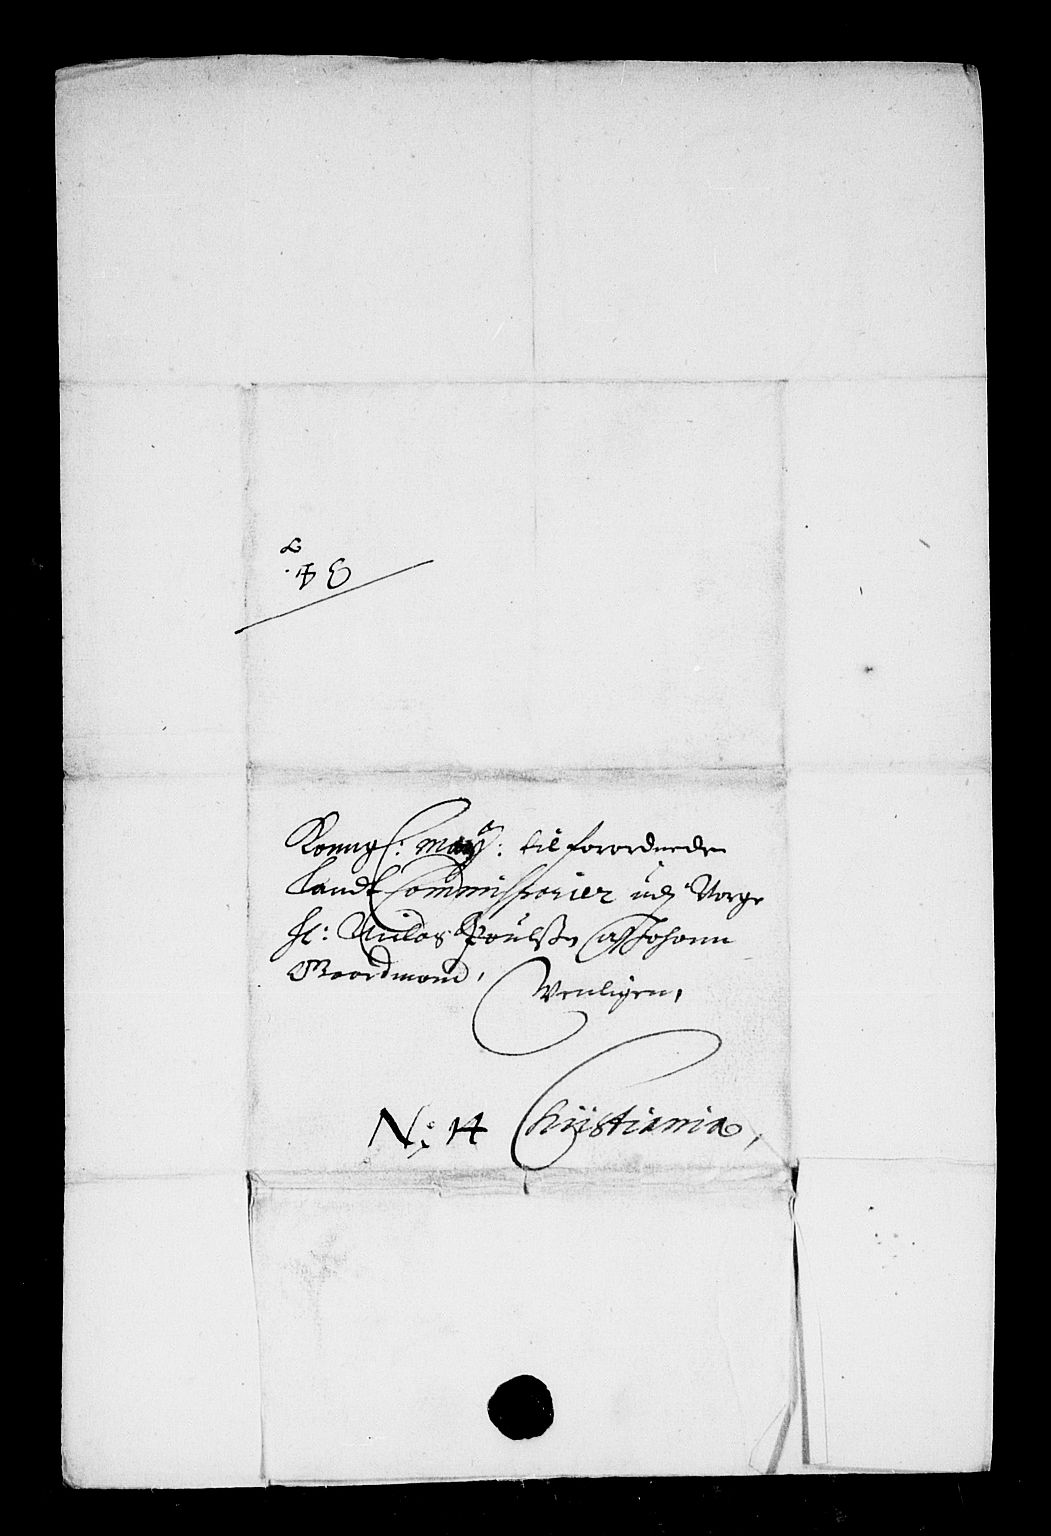 Konngl: May: til forordnede
Landt Commissarier udj Norge
H: Nielas Poulsøn och Johann
Boordmand,
Venligen,
No: 14 Christiania,